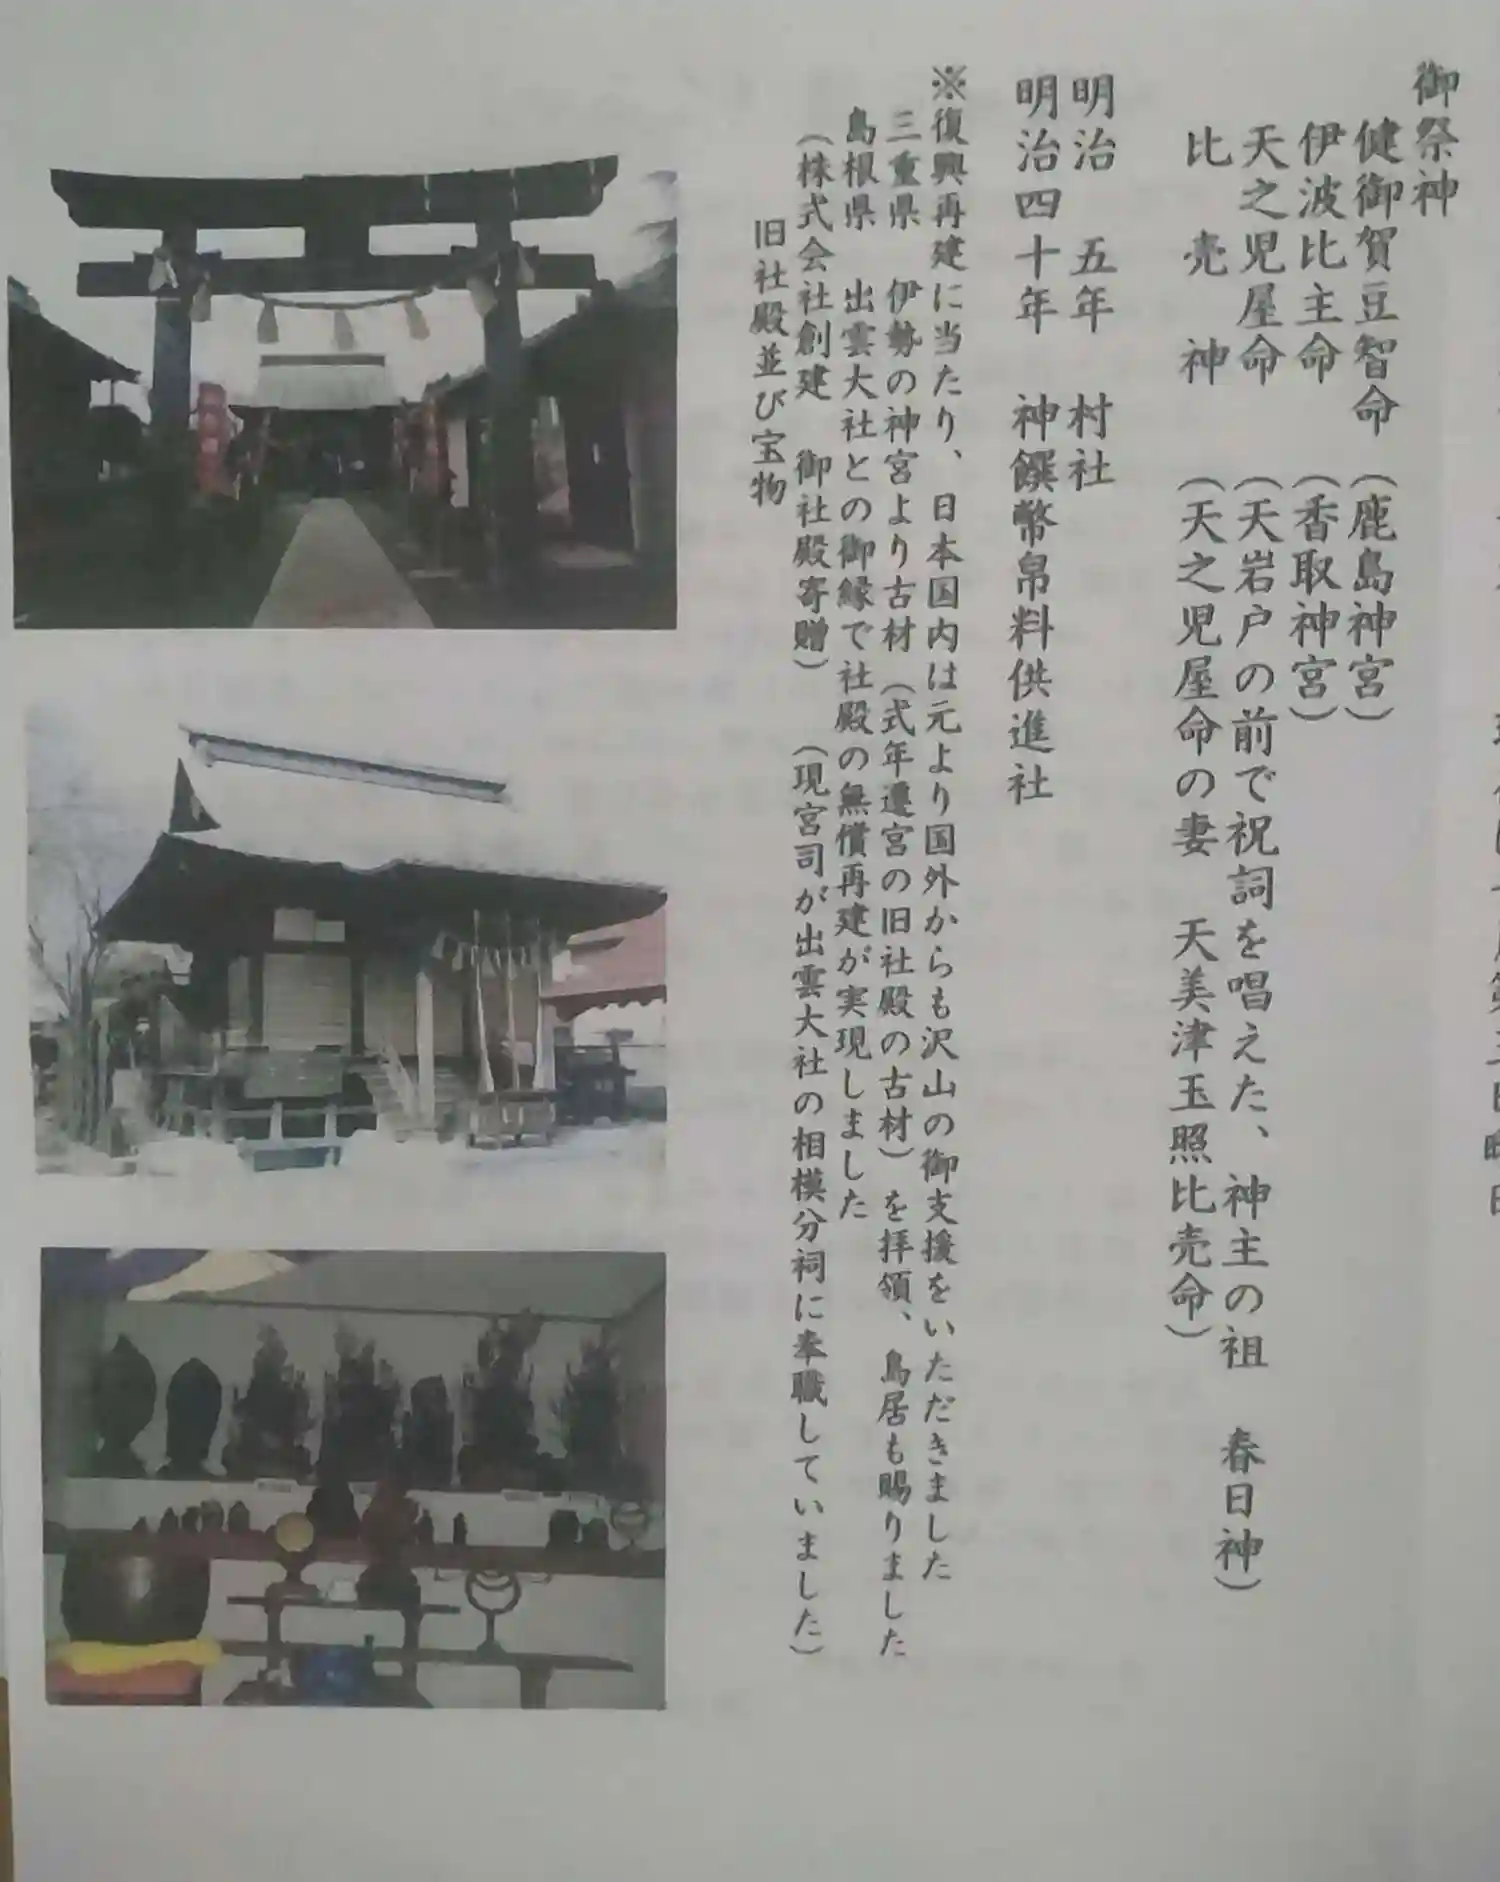 御祭神
健御賀豆智命 （鹿島神宮）
伊波比主命 （香取神宮）
天之児屋命 （天岩戸の前で祝詞を唱えた、神主の祖 春日神）
比売神 （天之児屋命の妻 天美津玉照比売命）
明治 五年 村社
明治四十年 神饌幣帛料供進社
※復興再建に当たり、日本国内は元より国外からも沢山の御支援をいただきました
三重県 伊勢の神宮より古材（式年遷宮の旧社殿の古材）を拝領、鳥居も賜りました
島根県 出雲大社との御縁で社殿の無償再建が実現しました
（株式会社創建 御社殿寄贈） （現宮司が出雲大社の相模分祠に奉職していました）
旧社殿並び宝物